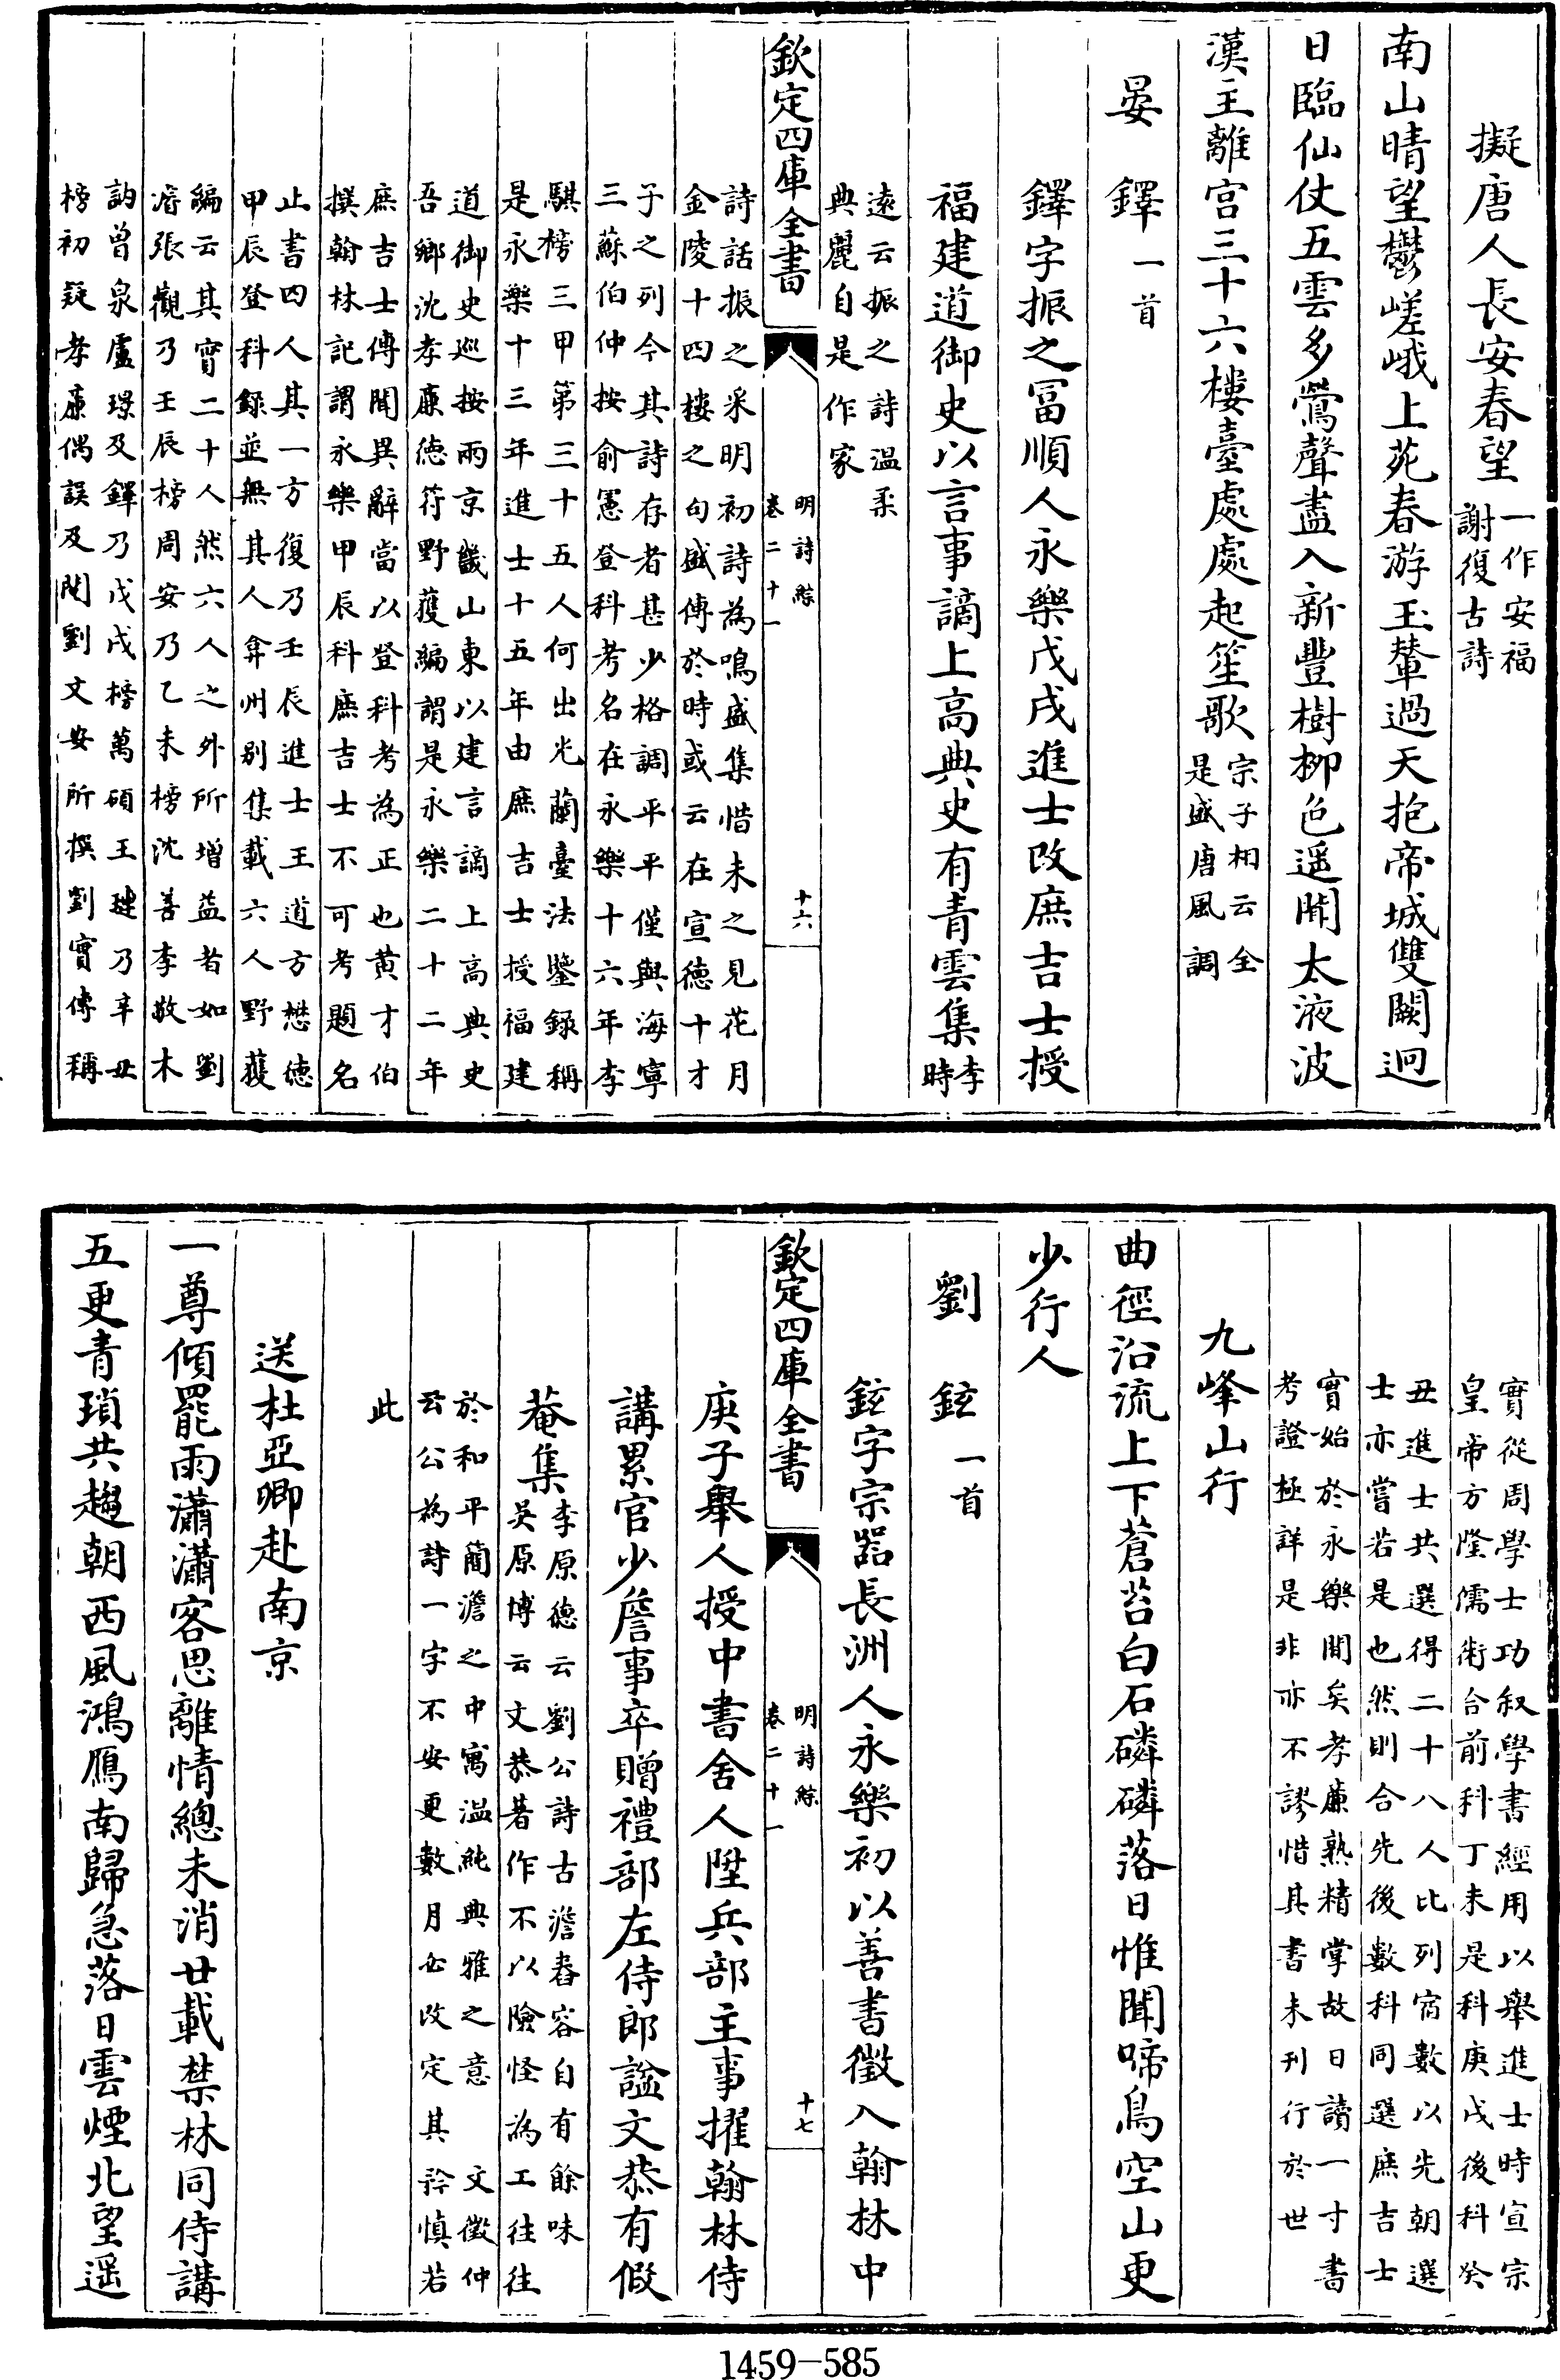 擬唐人長安春望一作安福
謝復古詩
南山晴望鬱嵯峨上苑春游玉輦過天抱帝城雙闕迥
日臨仙仗五雲多鶯聲盡入新豐樹柳色遥聞太液波
漢主離宫三十六樓臺處處起笙歌宗子相云全
是盛唐風調
晏鐸一首
鐸字振之冨順人永樂戊戌進士改庶吉士授
福建道御史以言事謫上高典史有青雲集李
時
遠云振之詩温柔
典麗自是作家
欽定四庫全書
明詩綜
卷二十一
十六
詩話振之采明初詩為鳴盛集惜未之見花月
金陵十四樓之句盛傳於時或云在宣徳十才
子之列今其詩存者甚少格調平平僅與海寧
三蘇伯仲按俞憲登科考名在永樂十六年李
騏榜三甲第三十五人何出光蘭臺法鑒録稱
是永樂十三年進士十五年由庶吉士授福建
道御史巡按兩京畿山東以建言謫上高典史
吾鄉沈孝廉徳符野獲編謂是永樂二十二年
庶吉士傳聞異辭當以登科考為正也黄才伯
撰翰林記謂永樂甲辰科庶吉士不可考題名
止書四人其一方復乃壬辰進士王道方懋徳
甲辰登科録並無其人弇州别集載六人野獲
編云其實二十人然六人之外所增益者如劉
濬張觀乃壬辰榜周安乃乙未榜沈善李敬木
訥曾泉盧璟及鐸乃戊戌榜萬碩王璉乃辛丑
榜初疑孝亷偶誤及閲劉文安所撰劉實傳稱
實從周學士功叙學書經用以舉進士時宣宗
皇帝方隆儒術合前科丁未是科庚戌後科癸
丑進士共選得二十八人比列宿數以先朝選
士亦嘗若是也然則合先後數科同選庶吉士
實始於永樂間矣孝亷熟精掌故日讀一寸書
考證極詳是非亦不謬惜其書未刊行於世
九峰山行
曲徑沿流上下蒼苔白石磷磷落日惟聞啼鳥空山更
少行人
劉鉉一首
鉉字宗器長洲人永樂初以善書徵入翰林中
欽定四庫全書
明詩綜
卷二十一
十七
庚子舉人授中書舍人陞兵部主事擢翰林侍
講累官少詹事卒贈禮部左侍郎諡文恭有假
菴集李原徳云劉公詩古澹舂容自有餘味
吳原博云文恭著作不以險怪為工往往
於和平簡澹之中寓温純典雅之意　文徵仲
云公為詩一字不安更數月必改定其矜慎若
此
送杜亞卿赴南京
一尊傾罷雨瀟瀟客思離情總未消廿載禁林同侍講
五更青瑣共趨朝西風鴻鴈南歸急落日雲煙北望遥
1459-585